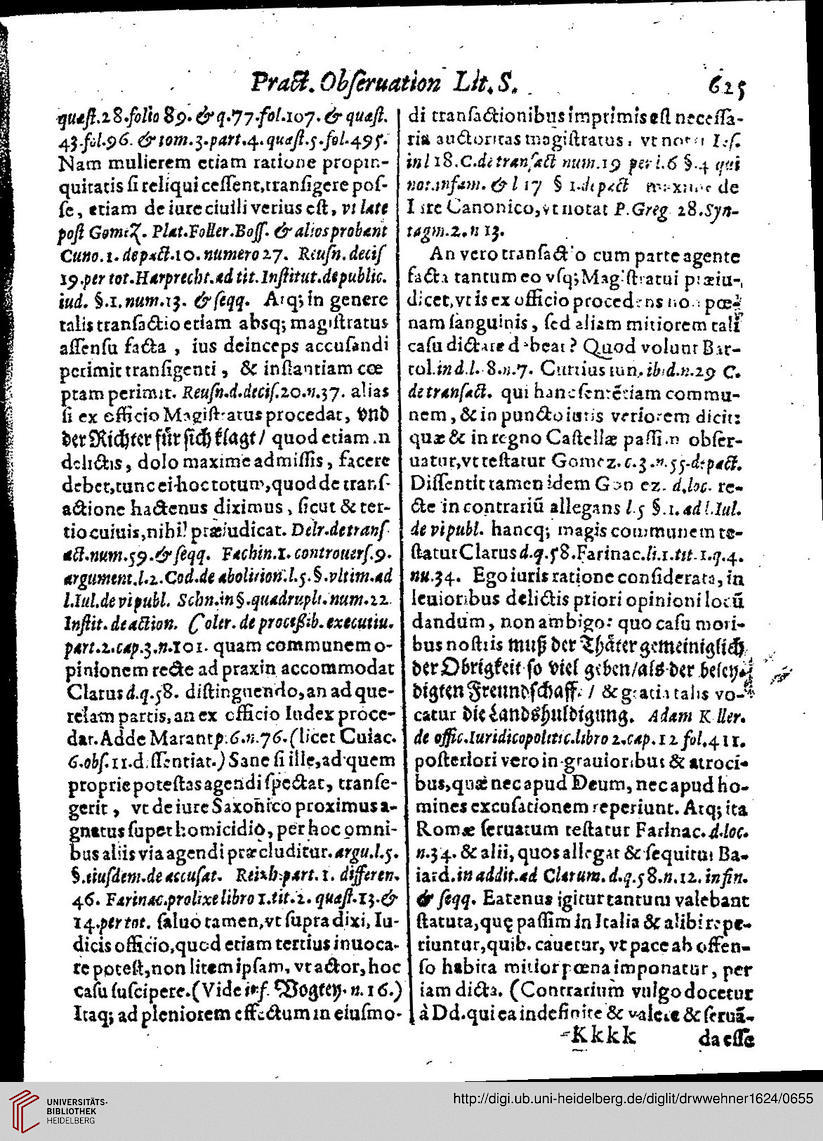 Pract. Obſeruation Lit. S. 625
quæſt.28.folio 89. & q.77.fol.107. & quæſt.
43.fol.96. & tom.3.part.4.quæſt.5.fol.495.
Nam mulierem etiam ratione propin-
quitatis ſi reliqui ceſſent, tranſigere poſ-
ſe, etiam de iure ciuili verius eſt, vt late
poſt GomeZ. Plat. Foller. Boſſ. & alios probant
Cuno.1. de pact.10. numero 27. Reuſn. deciſ
19. per tot. Harprecht. ad tit. Inſtitut. de public.
iud. §.1. num.13. & ſeqq. Atq; in genere
talis tranſactio etiam absq; magiſtratus
aſſenſu facta , ius deinceps accuſandi
perimit tranſigenti , & inſtantiam cœ
ptam perimit. Reuſn.d.deciſ.20.n.37. alias
ſi ex officio Magiſtratus procedat, vnd
der Richter für ſich klagt / quod etiam in
delictis, dolo maxime admiſſis, facere
debet, tunc ei hoc totum, quod de tranſ-
actione hactenus diximus , ſicut & ter-
tio cuiuis, nihil præiudicat. Delr. de tranſ
act.num.59. & ſeqq. Fachin.1. controuerſ.9.
argument.l.2. Cod. de abolition. l.5. §. vltim. ad
l.Iul. de vi publ. Schn. in §. quadrupli. num.22
Inſtit. de action. Coler. de proceßib. executiu.
part.2.cap.3.n.101. quam communem o-
pinionem recte ad praxin accommodat
Clarus d.q.58. diſtinguendo, an ad que-
relam partis, an ex officio Iudex proce-
dat. Adde Marant p.6.n.76. (licet Cuiac.
6.obſ.11. d.ſſentiat.) Sane ſi ille, ad quem
proprie poteſtas agendi ſpectat, tranſe-
gerit , vt de iure Saxonico proximus a-
gnatus ſuper homicidio, per hoc omni-
bus aliis via agendi præcluditur. argu.l.5.
§. eiuſdem. de accuſat. Reinh. part.1. differen.
46. Farinac. prolixe libro 1. tit.2. quæſt.13. &
14. per tot. ſaluo tamen, vt ſupra dixi, Iu-
dicis officio, quod etiam tertius inuoca-
re poteſt, non litem ipſam, vt actor, hoc
caſu ſuſcipere. (Vide inf. Vogtey. n.16.)
Itaq; ad pleniorem effectum in eiuſmo-
di tranſactionibus imprimis eſt neceſſa-
ria auctoritas magiſtratus , vt notat Iaſ.
in l 18. C. de tranſact num.19 per l.6 §.4 qui
not. infam. & l 17 § 1. de pact maxime de
Iure Canonico, vt notat P. Greg 28. Syn-
tagm.2.n 13.
An vero tranſactio cum parte agente
facta tantum eo vſq; Magiſtratui præiu-
dicet, vt is ex officio procedens non pœ-
nam ſanguinis , ſed aliam mitiorem tali
caſu dictare debeat ? Quod volunt Bar-
tol. in d.l. 8.n.7. Curtius iun. ibid.n.29 C.
de tranſact. qui hanc ſentẽtiam commu-
nem , & in puncto iuris veriorem dicit:
quæ & in regno Caſtellæ paſſim obſer-
uatur, vt teſtatur Gomez. c.3.n.55. de pact.
Diſſentit tamen idem Gomez. d.loc. re-
cte in contrariũ allegans l.5 §.1. ad l.Iul.
de vi publ. hancq; magis communem te-
ſtatur Clarus d.q.58. Farinac. li.1.tit.1.q.4.
nu.34. Ego iuris ratione conſiderata, in
leuioribus delictis priori opinioni locũ
dandum, non ambigo: quo caſu mori-
bus noſtris muß der Thäter gemeiniglich
der Obrigkeit ſo viel geben/als der beley-
digten Freundſchafft / & gratia talis vo-
catur die Landshuldigung. Adam Keller.
de offic. Iuridicopolitic. libro 2. cap.12 fol.411.
poſteriori vero in grauioribus & atroci-
bus, quæ nec apud Deum, nec apud ho-
mines excuſationem reperiunt. Atq; ita
Romæ ſeruatum teſtatur Farinac. d.loc.
n.34. & alii, quos allegat & ſequitur Ba-
iard. in addit. ad Clarum. d.q.58.n.12. in fin.
& ſeqq. Eatenus igitur tantum valebant
ſtatuta, quę paſſim in Italia & alibi repe-
riuntur, quib. cauetur, vt pace ab offen-
ſo habita mitior pœna imponatur , per
iam dicta. (Contrarium vulgo docetur
à Dd. qui ea indefinite & valere & ſeruã-
Kkkk da eſſe
UNIVERSITÄTS-
BIBLIOTHEK
HEIDELBERG
http://digi.ub.uni-heidelberg.de/diglit/drwwehner1624/0655